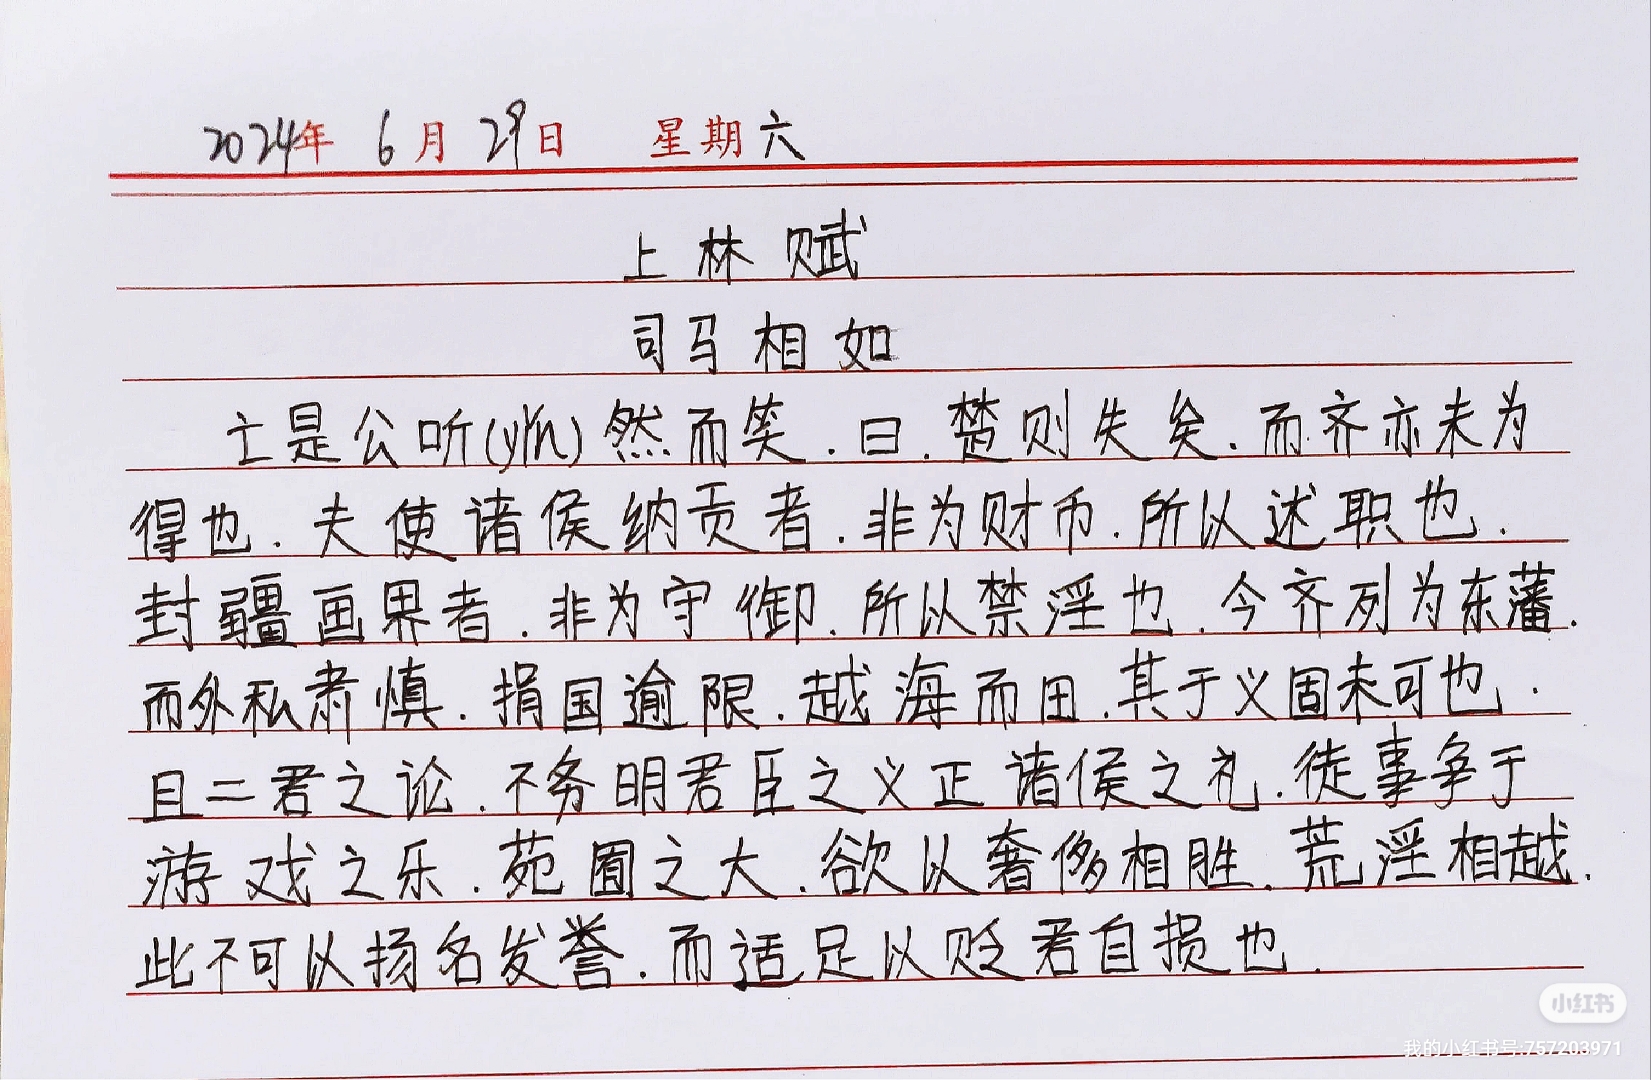 2024年 6月 29日 星期六
上林赋
司马相如
亡是公听(yǐn)然而笑.曰.楚则失矣.而齐亦未为
得也.夫使诸侯纳贡者.非为财币.所以述职也.
封疆画界者.非为守御.所以禁淫也.今齐列为东藩.
而外私肃慎.捐国逾限.越海而田.其于义固未可也.
且二君之论.不务明君臣之义正诸侯之礼.徒事争于
游戏之乐.苑囿之大.欲以奢侈相胜.荒淫相越.
此不可以扬名发誉.而适足以贬君自损也.
小红书
我的小红书号:757203971